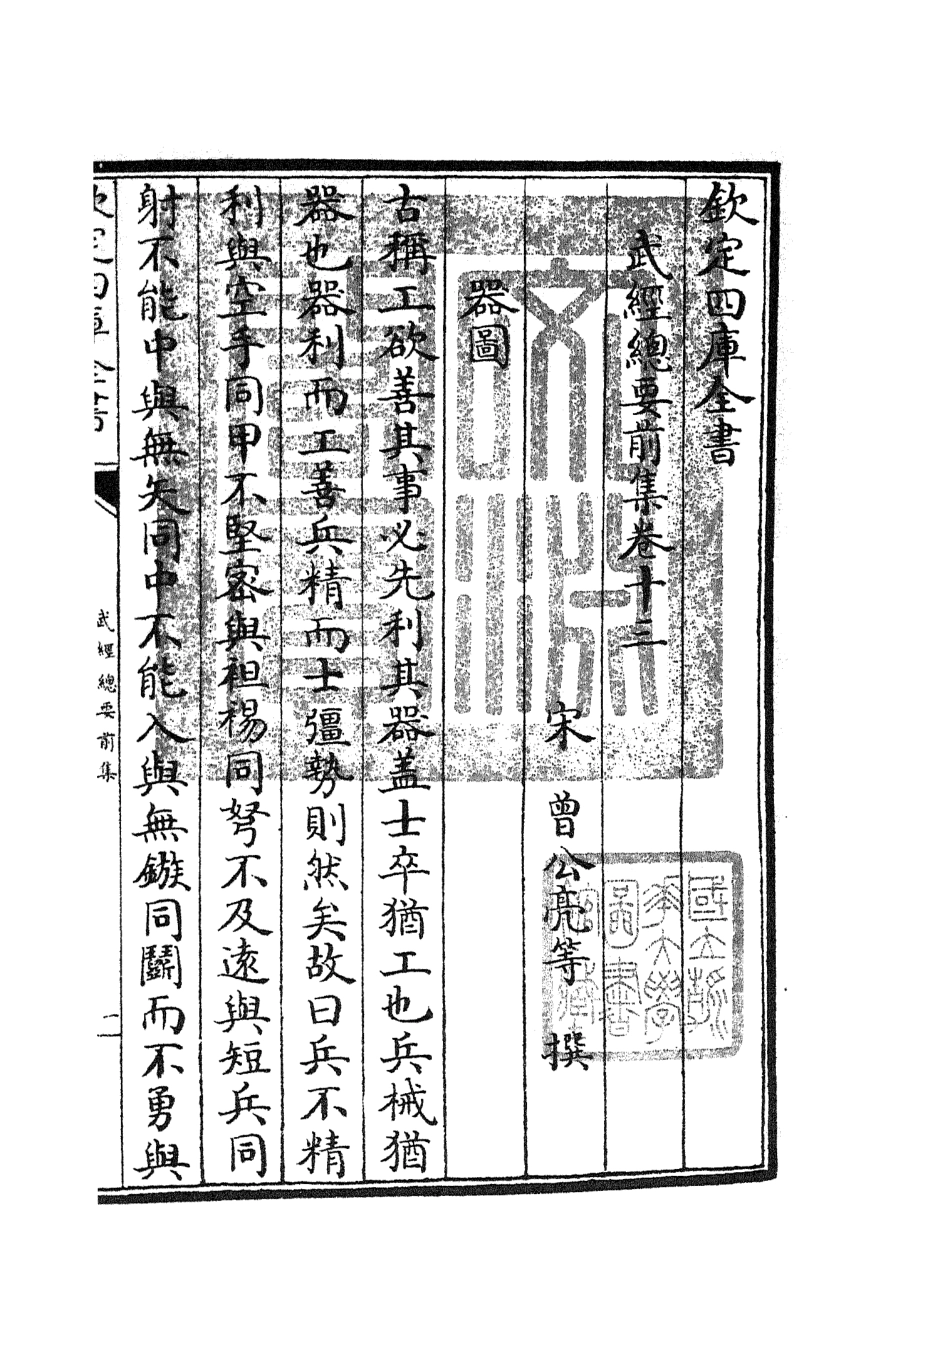 欽定四庫全書
武經總要前集卷十三
宋 曾公亮等 撰
器圖
古稱工欲善其事必先利其器盖士卒猶工也兵械猶
器也器利而工善兵精而士彊勢則然矣故曰兵不精
利與空手同甲不堅密與袒裼同弩不及遠與短兵同
射不能中與無矢同中不能入與無鏃同鬬而不勇與
欽定四庫全書
武經總要前集